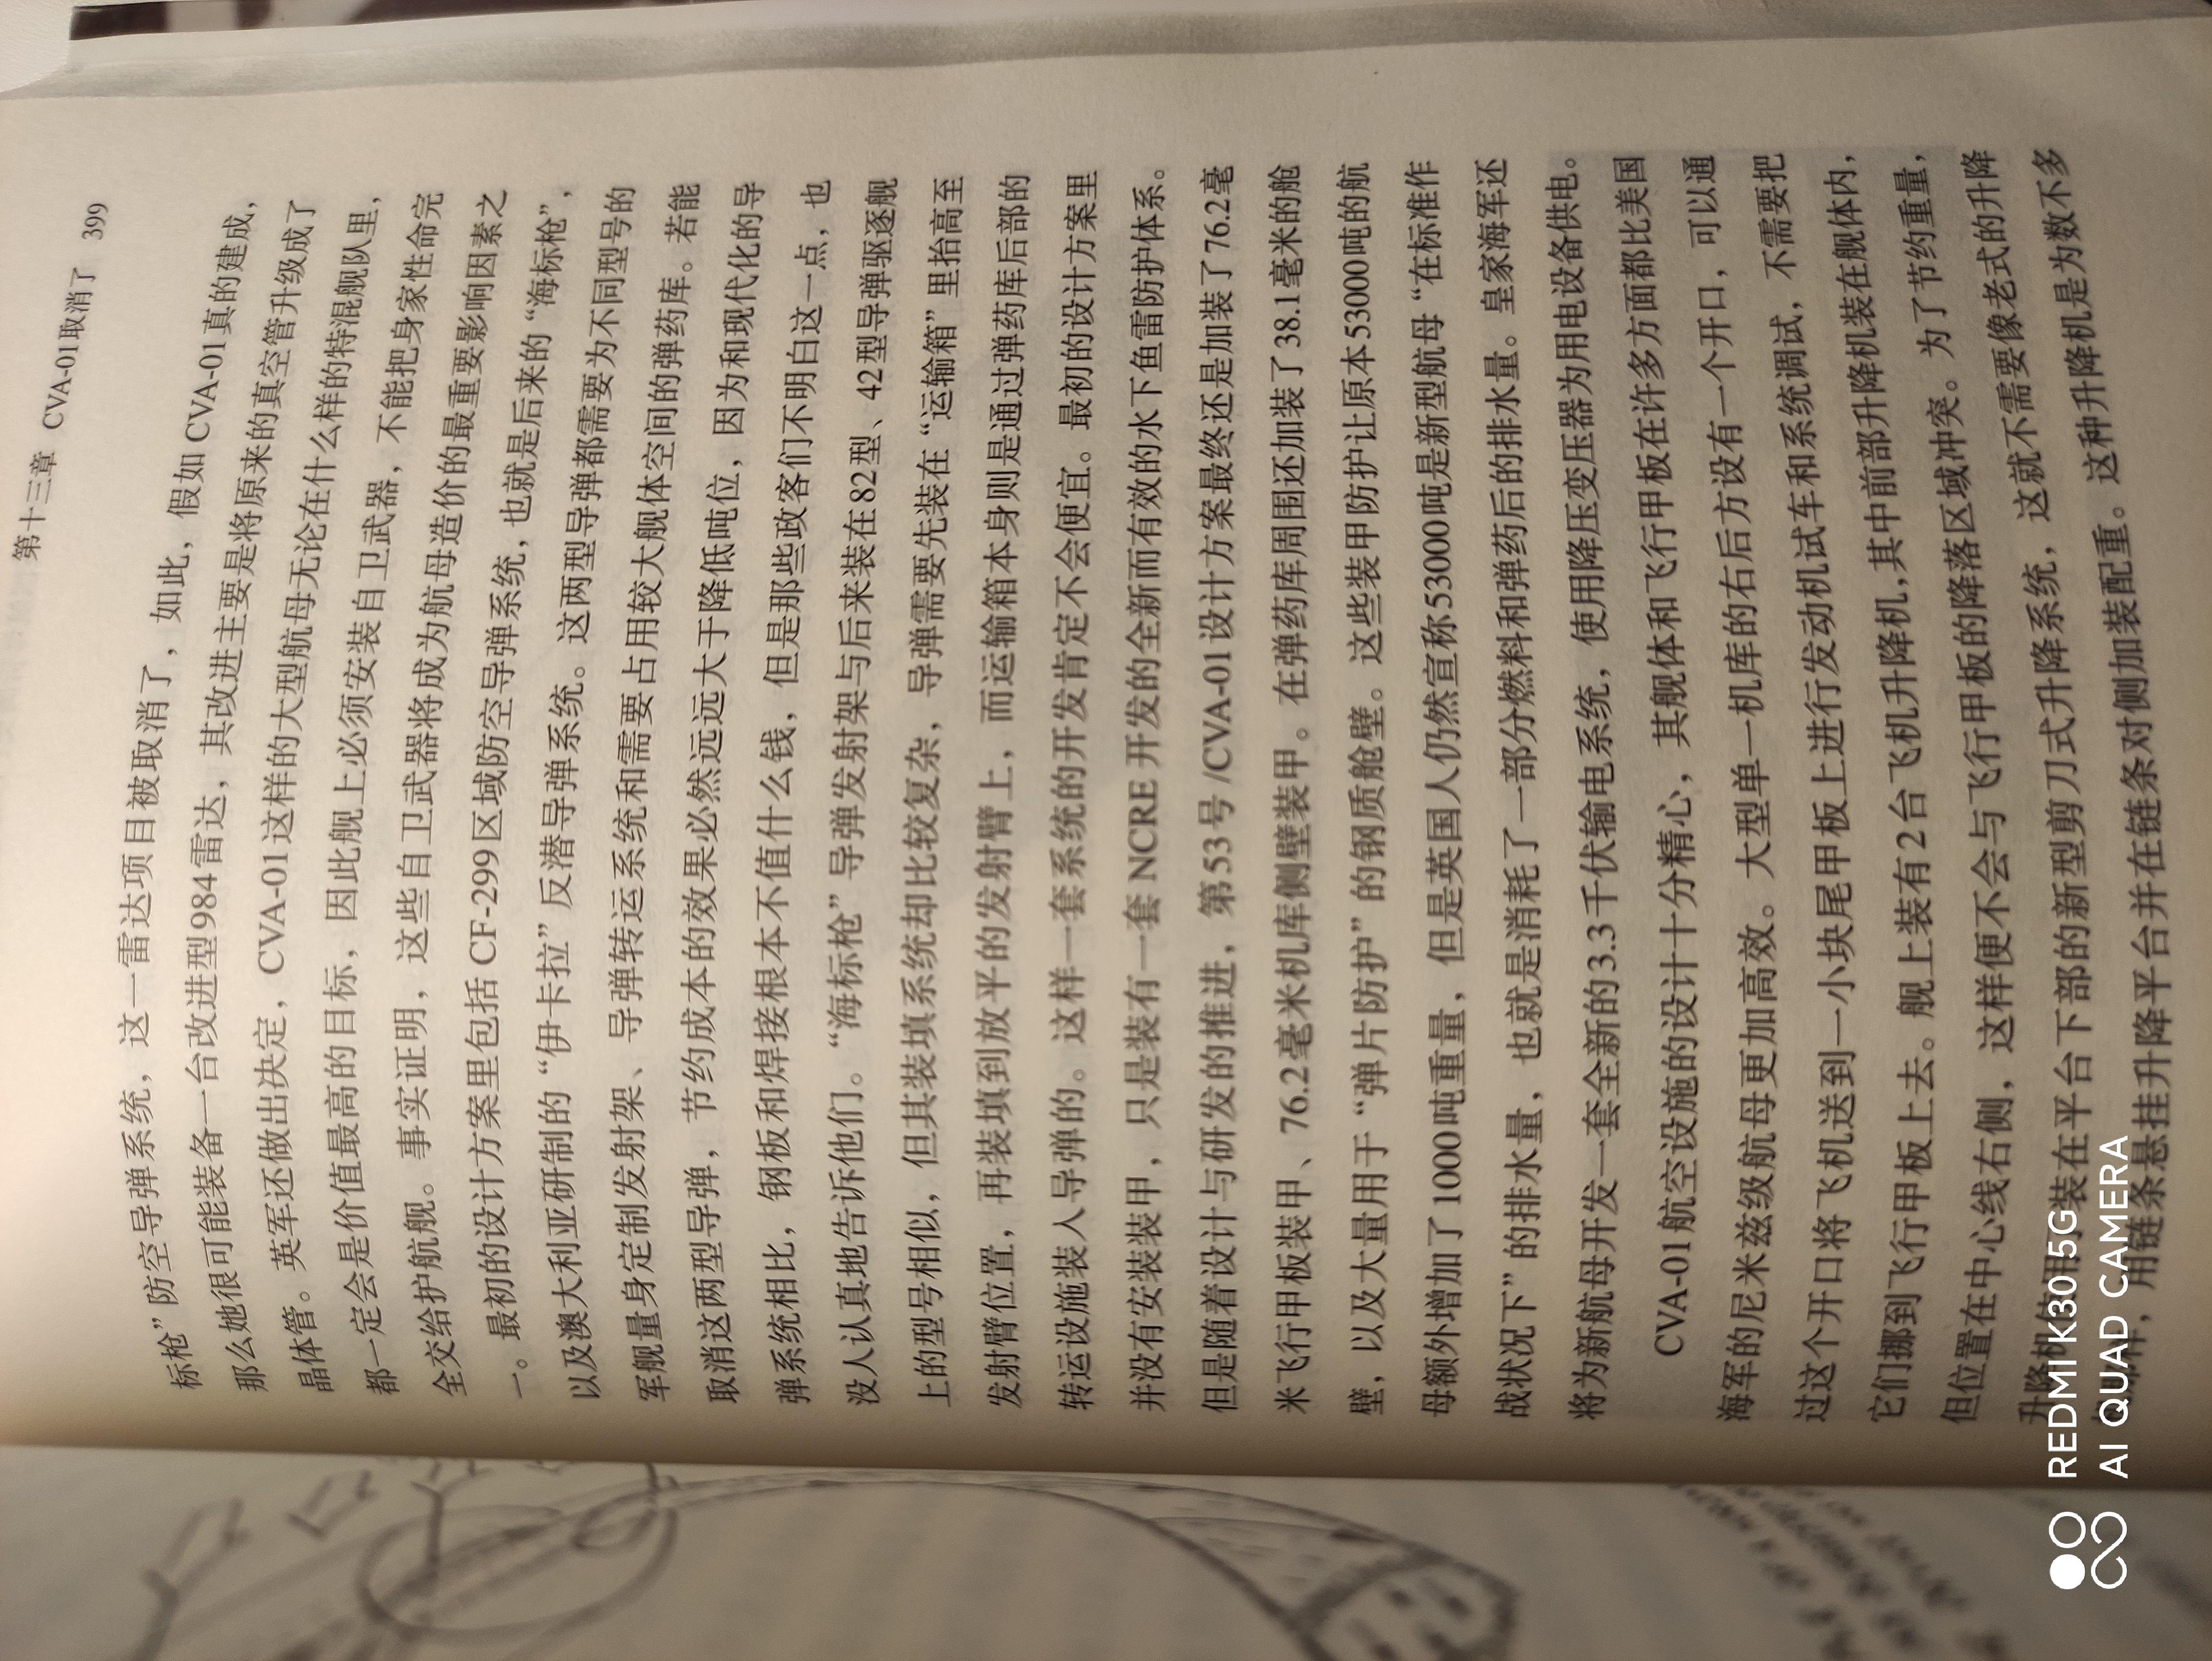 第十三章 CVA-01取消了 399
标枪”防空导弹系统，这一雷达项目被取消了，如此，假如CVA-01真的建成，
那么她很可能装备一台改进型984雷达，其改进主要是将原来的真空管升级成了
晶体管。英军还做出决定，CVA-01这样的大型航母无论在什么样的特混舰队里，
都一定会是价值最高的目标，因此舰上必须安装自卫武器，不能把身家性命完
全交给护航舰。事实证明，这些自卫武器将成为航母造价的最重要影响因素之
一。最初的设计方案里包括CF-299区域防空导弹系统，也就是后来的“海标枪”，
以及澳大利亚研制的“伊卡拉”反潜导弹系统。这两型导弹都需要为不同型号的
军舰量身定制发射架、导弹转运系统和需要占用较大舰体空间的弹药库。若能
取消这两型导弹，节约成本的效果必然远远大于降低吨位，因为和现代化的导
弹系统相比，钢板和焊接根本不值什么钱，但是那些政客们不明白这一点，也
没人认真地告诉他们。“海标枪”导弹发射架与后来装在82型、42型导弹驱逐舰
上的型号相似，但其装填系统却比较复杂，导弹需要先装在“运输箱”里抬高至
发射臂位置，再装填到放平的发射臂上，而运输箱本身则是通过弹药库后部的
转运设施装入导弹的。这样一套系统的开发肯定不会便宜。最初的设计方案里
并没有安装装甲，只是装有一套NCRE开发的全新而有效的水下鱼雷防护体系。
但是随着设计与研发的推进，第53号/CVA-01设计方案最终还是加装了76.2毫
米飞行甲板装甲、76.2毫米机库侧壁装甲。在弹药库周围还加装了38.1毫米的舱
壁，以及大量用于“弹片防护”的钢质舱壁。这些装甲防护让原本53000吨的航
母额外增加了1000吨重量，但是英国人仍然宣称53000吨是新型航母“在标准作
战状况下”的排水量，也就是消耗了一部分燃料和弹药后的排水量。皇家海军还
将为新航母开发一套全新的3.3千伏输电系统，使用降压变压器为用电设备供电。
CVA-01航空设施的设计十分精心，其舰体和飞行甲板在许多方面都比美国
海军的尼米兹级航母更加高效。大型单一机库的右后方设有一个开口，可以通
过这个开口将飞机送到一小块尾甲板上进行发动机试车和系统调试，不需要把
它们挪到飞行甲板上去。舰上装有2台飞机升降机，其中前部升降机装在舰体内，
但位置在中心线右侧，这样便不会与飞行甲板的降落区域冲突。为了节约重量，
升降机使用装在平台下部的新型剪刀式升降系统，这就不需要像老式的升降
那样，用链条悬挂升降平台并在链条对侧加装配重。这种升降机是为数不多
REDMI K30 5G
AI QUAD CAMERA